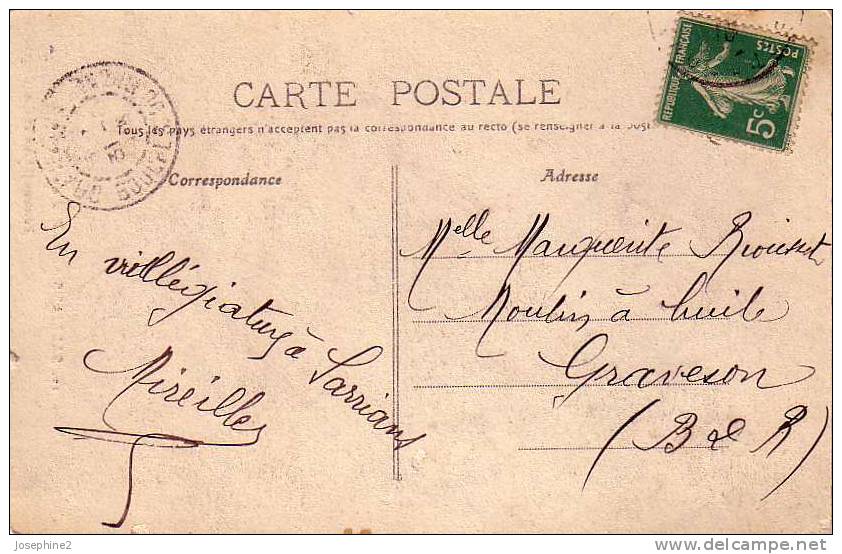 CARTE POSTALE
Tous les pays étrangers n'acceptent pas la correspondance au recto (se renseigner à la post
Correspondance
Adresse
REPUBLIQUE FRANÇAISE
POSTES
5c
En villégiature à Sarrians
Mireille
Melle Marguerite
Moulin à huile
Graveson
(B d R)
Josephine2
delcampe.net